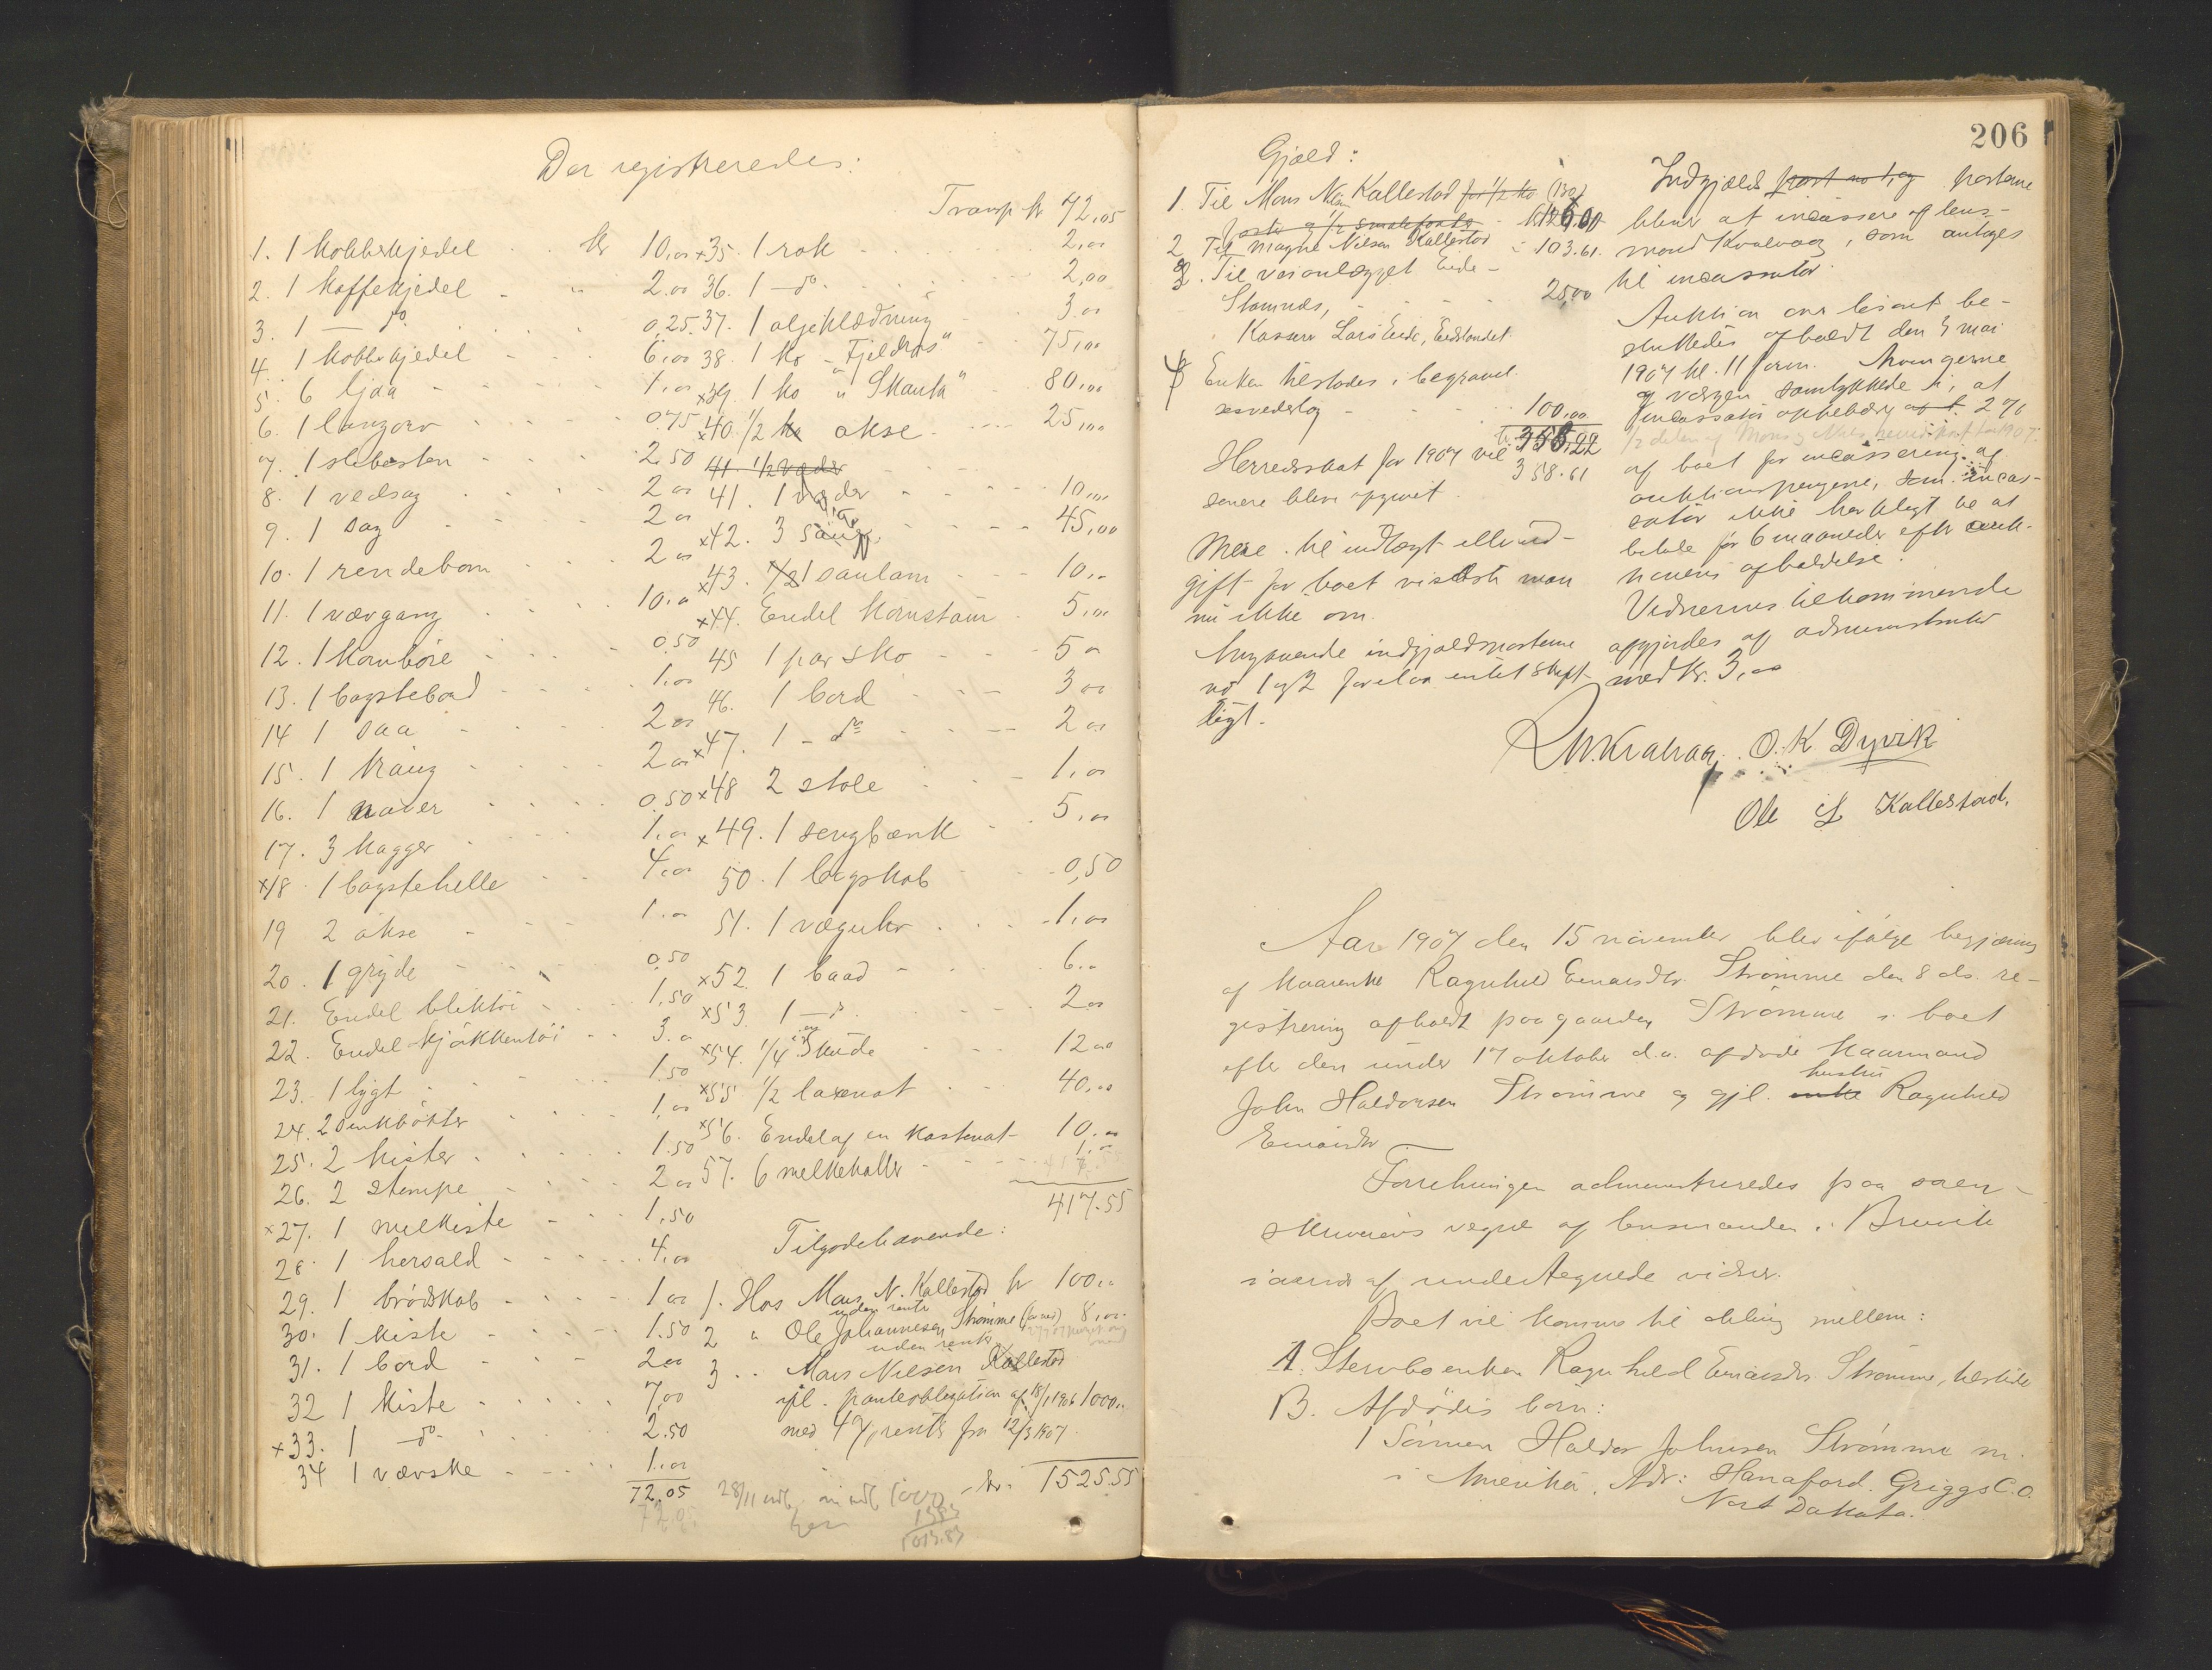 Der registreredes:
1. 1 kobberkjedel kr 10,00
2. 1 kaffekjedel - " 2.00
3. 1 — do. 0,25
4. 1 kobberkjedel 6,00
5. 6 ljaa 1,00
6. 1 langorv 0.75
7. 1 slibesten 2.50
8. 1 vedsag 2 00
9. 1 sag 2 00
10. 1 rendebom 2 00
11. 1 vævgang 10.00
12. 1 kornböre 0,50
13. 1 bagstebord 1,00
14 1 saa 2 00
15. 1 2 00
16. 1 naver 0.50
17. 3 kagger 1,00
x18 1 bagstehelle 4,00
19 2 økse 1.00
20. 1 gryde 0,50
21. Endel bliktöi 1,50
22. Endel kjökkentöi 3.00
23. 1 lygt 1.50
24. 2 1,00
25. 2 kister 1.50
26. 2 stampe 2 00
x27. 1 melkiste 1,50
28. 1 hersald 4,00
29. 1 brödskab 1 00
30. 1 kiste 1.50
31. 1 bord 2 00
32 1 kiste 7,00
x33. 1 —do- 2.50
34 1 vævske 1.00
72,05
72,05
Transp kr 72,05
x35. 1 rok 2,00
36. 1 — do. 2,00
37. 1 oljeklædning 3,00
38. 1 ko "Fjeldros" 75,00
x39. 1 ko " Skauta" 80,00
x40. 1/2 ko økse 25,00
41. 1/2 væder
41. 1 væder 10,00
x42. 3 sauer 45,00
x43. 1/2 1 saulam 10,00
x44. Endel kornstaur 5,00
45 1 par sko 5 00
46. 1 bord 3 00
x47. 1 - do 2 00
x48 2 stole 1,00
x49. 1 sengbænk 5,00
50. 1 bogskab 0,50
51. 1 væguhr 1,00
x52. 1 baad 6.00
x53. 1 — do 2 00
x54. 1/4 i en skude 12 00
x55 1/2 laxenot 40,00
x56. Endel af en kastenot 10.00
57. 6 melkekoller 1,00
417.55
Tilgodehavende:
1. Hos Mons N. Kallestad kr 100,00
uden rente
2 " Ole Johannesen Strømme 8,00
uden rente
3 .. Mons Nilsen Kallestad
ifl. panteobligation af 18/1 1906 1000,00
med 4 % rente fra 12/3 1907.
- kr. 1525.55
28/11
13.83
1013.83
206
Gjæld:
1. Til Mons Nilsen Kallestad for 1/2 ko
foster og 1/2 smalefoster
2 Til Magne Nilsen Kallestad - 103.61.
3. Til veianlægget Eide-
Stamnes, 25,00
Kasserer Lars Eide, Eidslandet
4 Enken tilstodes i begravel-
sesvederlag 100,00
358,22
Herredsskat for 1907 vil 358.61
senere blive opgivet.
Mere til indtægt eller ud-
gift for boet vidste man
nu ikke om.
Angaaende indgjældsposterne
no 1 og 2 forelaa intet skrift-
ligt.
Indgjælds post no 1, og posterne
bliver at incassere af lens-
mand Kvalvaag, som antages
til incassator.
Auktion over løsøret be-
sluttedes afholdt den 3 mai
1907 kl. 11 form. Arvingerne
og værgen samtykkede i, at
incassator oppebærer af b. 2 %
af boet for incassering af
auktionspengene, som incas-
sator ikke har pligt til at
betale før 6 maaneder efter auk-
tionens afholdelse.
Vidnernes tilkommende
opgjordes af administrator
med kr. 3,00
O. K. Dyvik
Ole L Kallestad.
Aar 1907 den 15 november blev ifølge begjæring
af kaarenke Ragnhild Einarsdtr. Strømme den 8 ds. re-
gistrering afholdt paa gaarden Strømme i boet
efter den under 17 oktober d.a. afdøde kaarmand
John Haldorsen Strømme og gjl. enke hustru Ragnhild
Einarsdtr
Forretningen administreredes paa soren-
skriverens vegne af lensmanden i Bruvik
i overvær af undertegnede vidner.
Boet vil komme til deling mellem:
A. Sterboenken Ragnhild Einarsdtr. Strømme, tilstede
B. Afdödes born:
1 Sønnen Haldor Johnsen Strømme m.
i Amerika. Adr: Hanaford. Griggs C.o.
Nort Dakota.